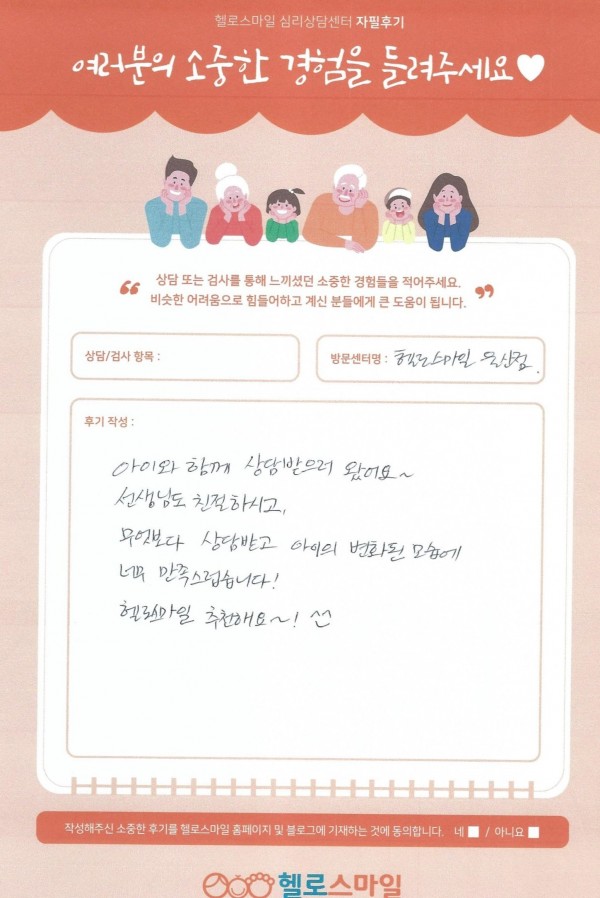 헬로스마일 심리상담센터 자필후기
여러분의 소중한 경험을 들려주세요♥
“ 상담 또는 검사를 통해 느끼셨던 소중한 경험들을 적어주세요.
비슷한 어려움으로 힘들어하고 계신 분들에게 큰 도움이 됩니다. ”
상담/검사 항목 :
방문센터명 : 헬로스마일 둔산점.
후기 작성 :
아이와 함께 상담받으러 왔어요~
선생님도 친절하시고,
무엇보다 상담받고 아이의 변화된 모습에
너무 만족스럽습니다!
헬로스마일 추천해요~! ^^
작성해주신 소중한 후기를 헬로스마일 홈페이지 및 블로그에 기재하는 것에 동의합니다. 네 ■ / 아니요 ■
헬로스마일